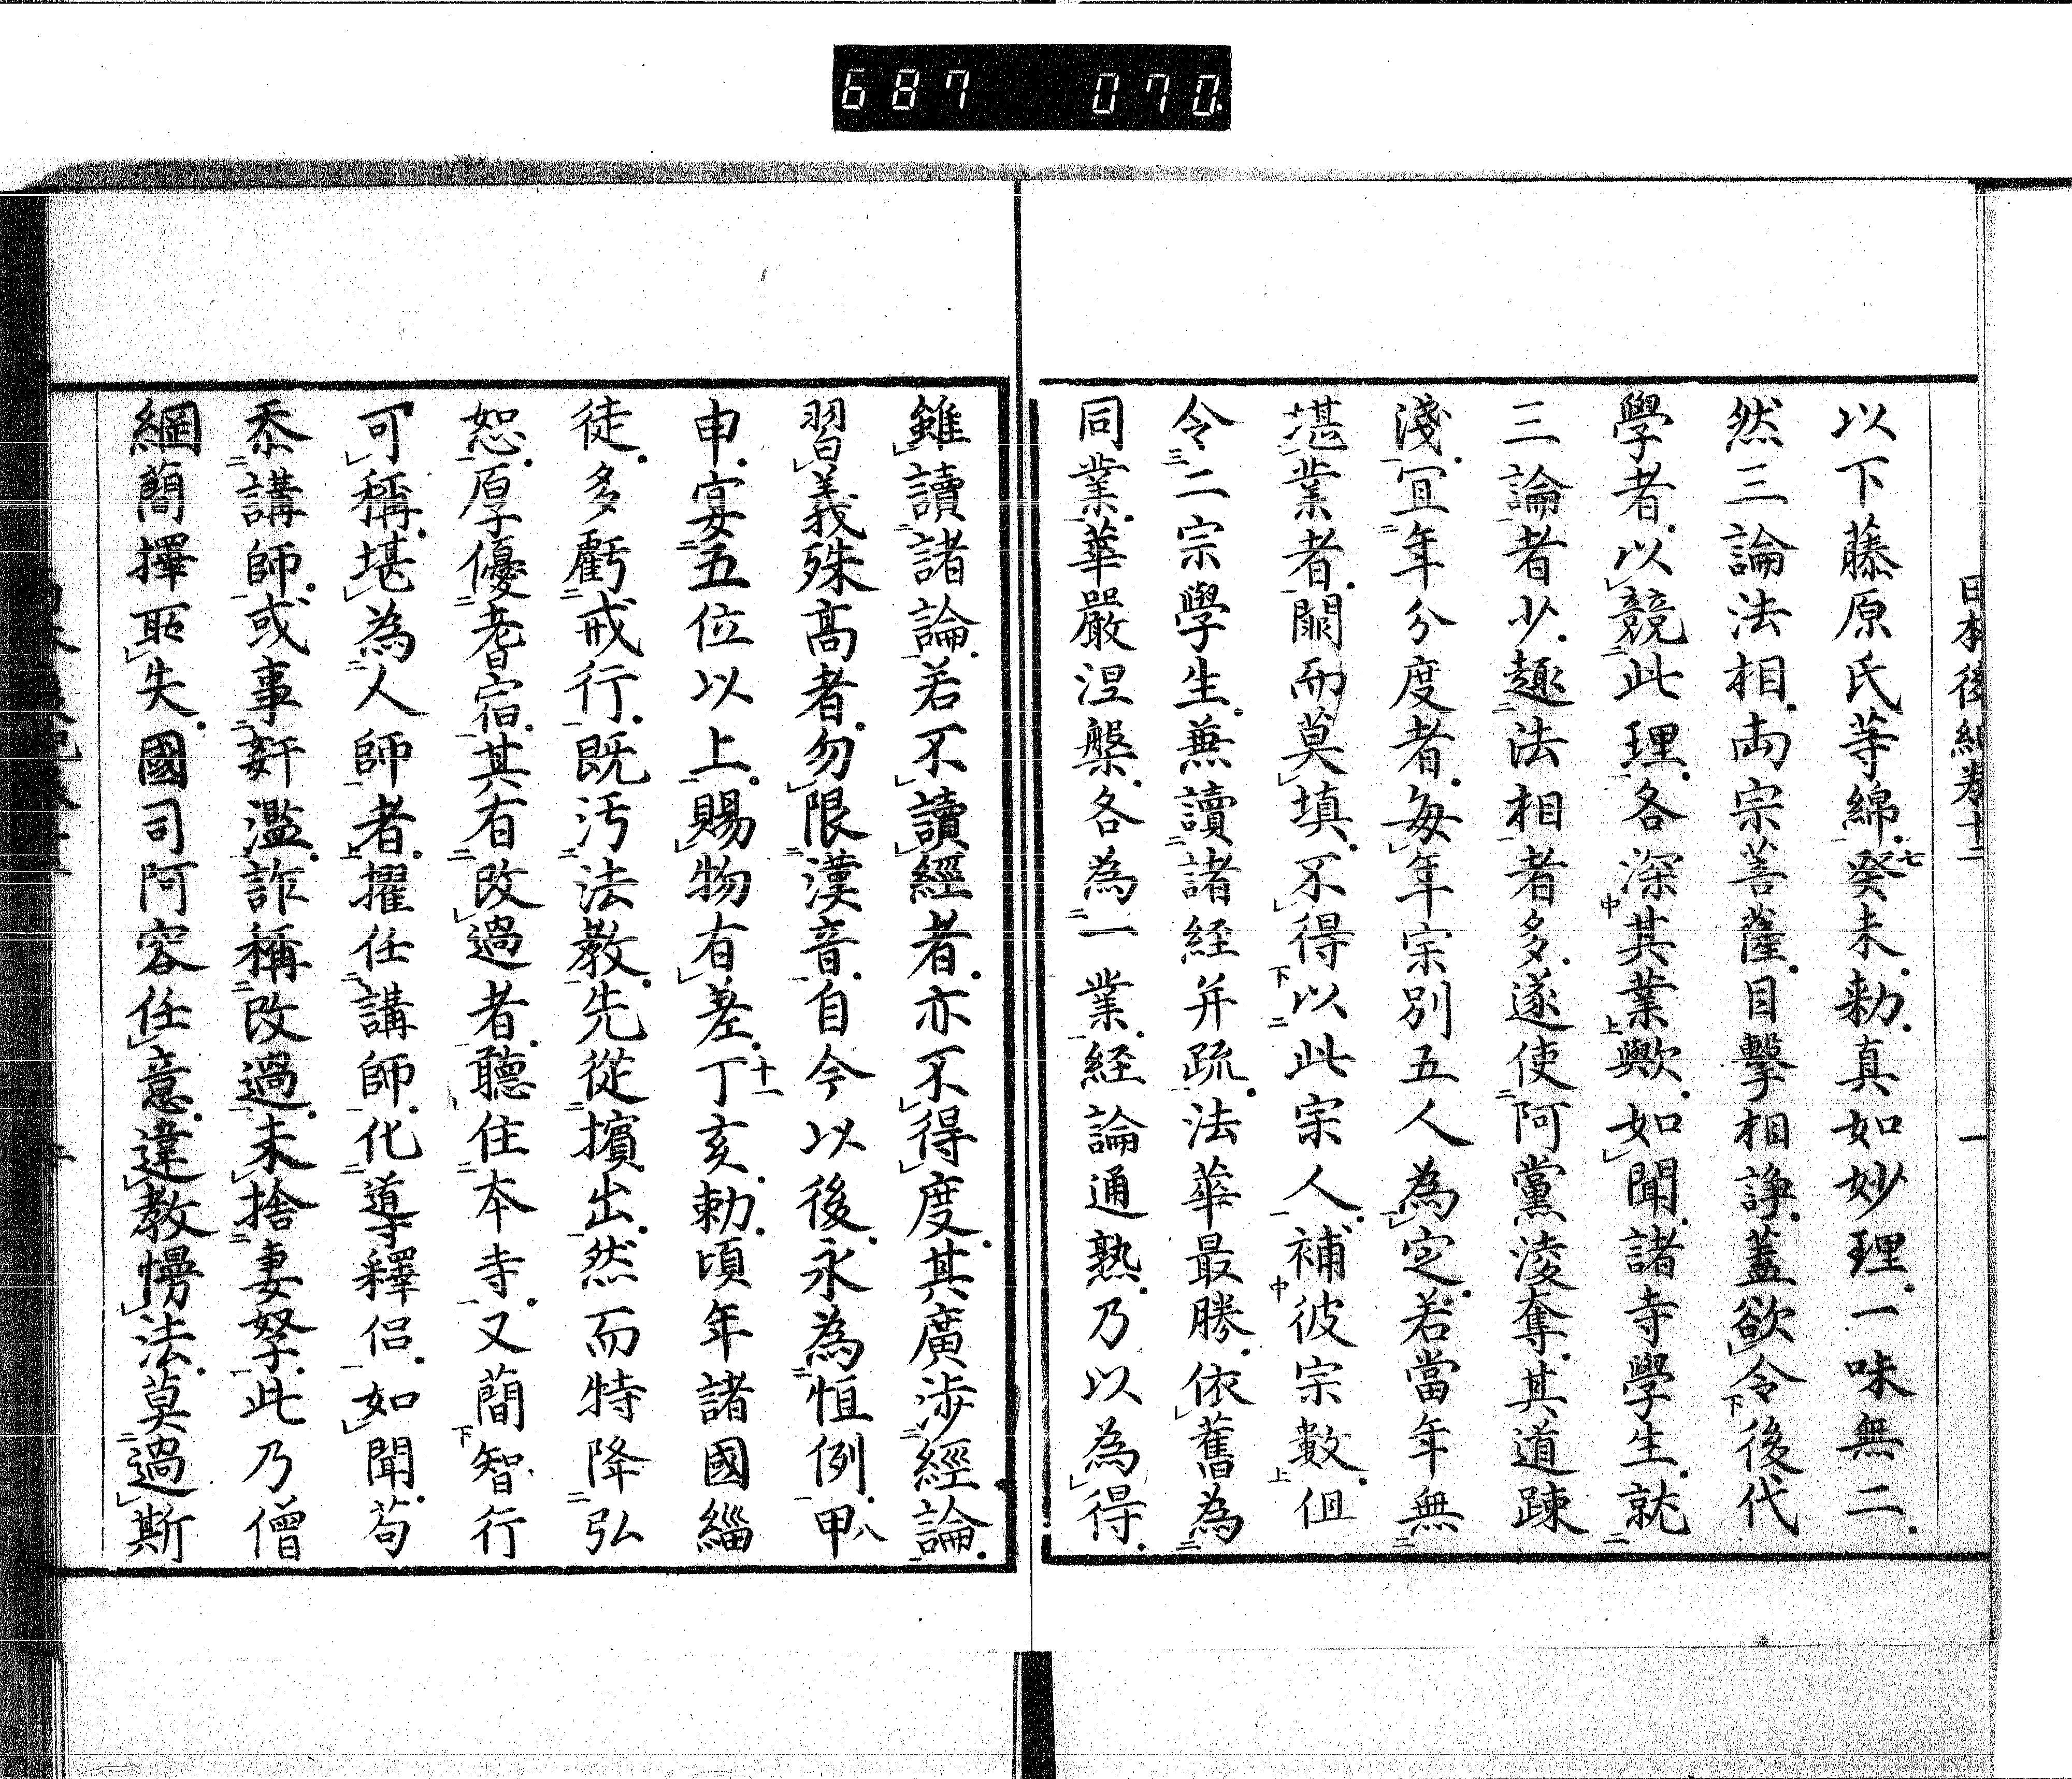 687 070
日本後紀卷十二 一
以下藤原氏等綿癸未勅真如妙理一味無二
然三論法相両宗菩薩目擊相諍蓋欲令後代
學者以競此理各深其業歟如聞諸寺學生就
三論者少趣法相者多遂使阿黨淩奪其道疎
淺宜年分度者每年宗別五人為定若當年無
堪業者闕而莫填不得以此宗人補彼宗數但
令二宗學生兼讀諸経并疏法華最勝依舊為
同業華嚴涅槃各為一業経論通熟乃以為得
雖讀諸論若不讀經者亦不得度其廣渉經論
習義殊高者勿限漢音自今以後永為恒例甲
申宴五位以上賜物有差丁亥勅頃年諸國緇
徒多虧戒行既汚法教先從擯出然而特降弘
恕厚優耆宿其有改過者聽住本寺又簡智行
可稱堪為人師者擢任講師化導釋侶如聞苟
忝講師或事姧濫詐稱改過未捨妻孥此乃僧
綱簡擇耴失國司阿容任意違教慢法莫過斯